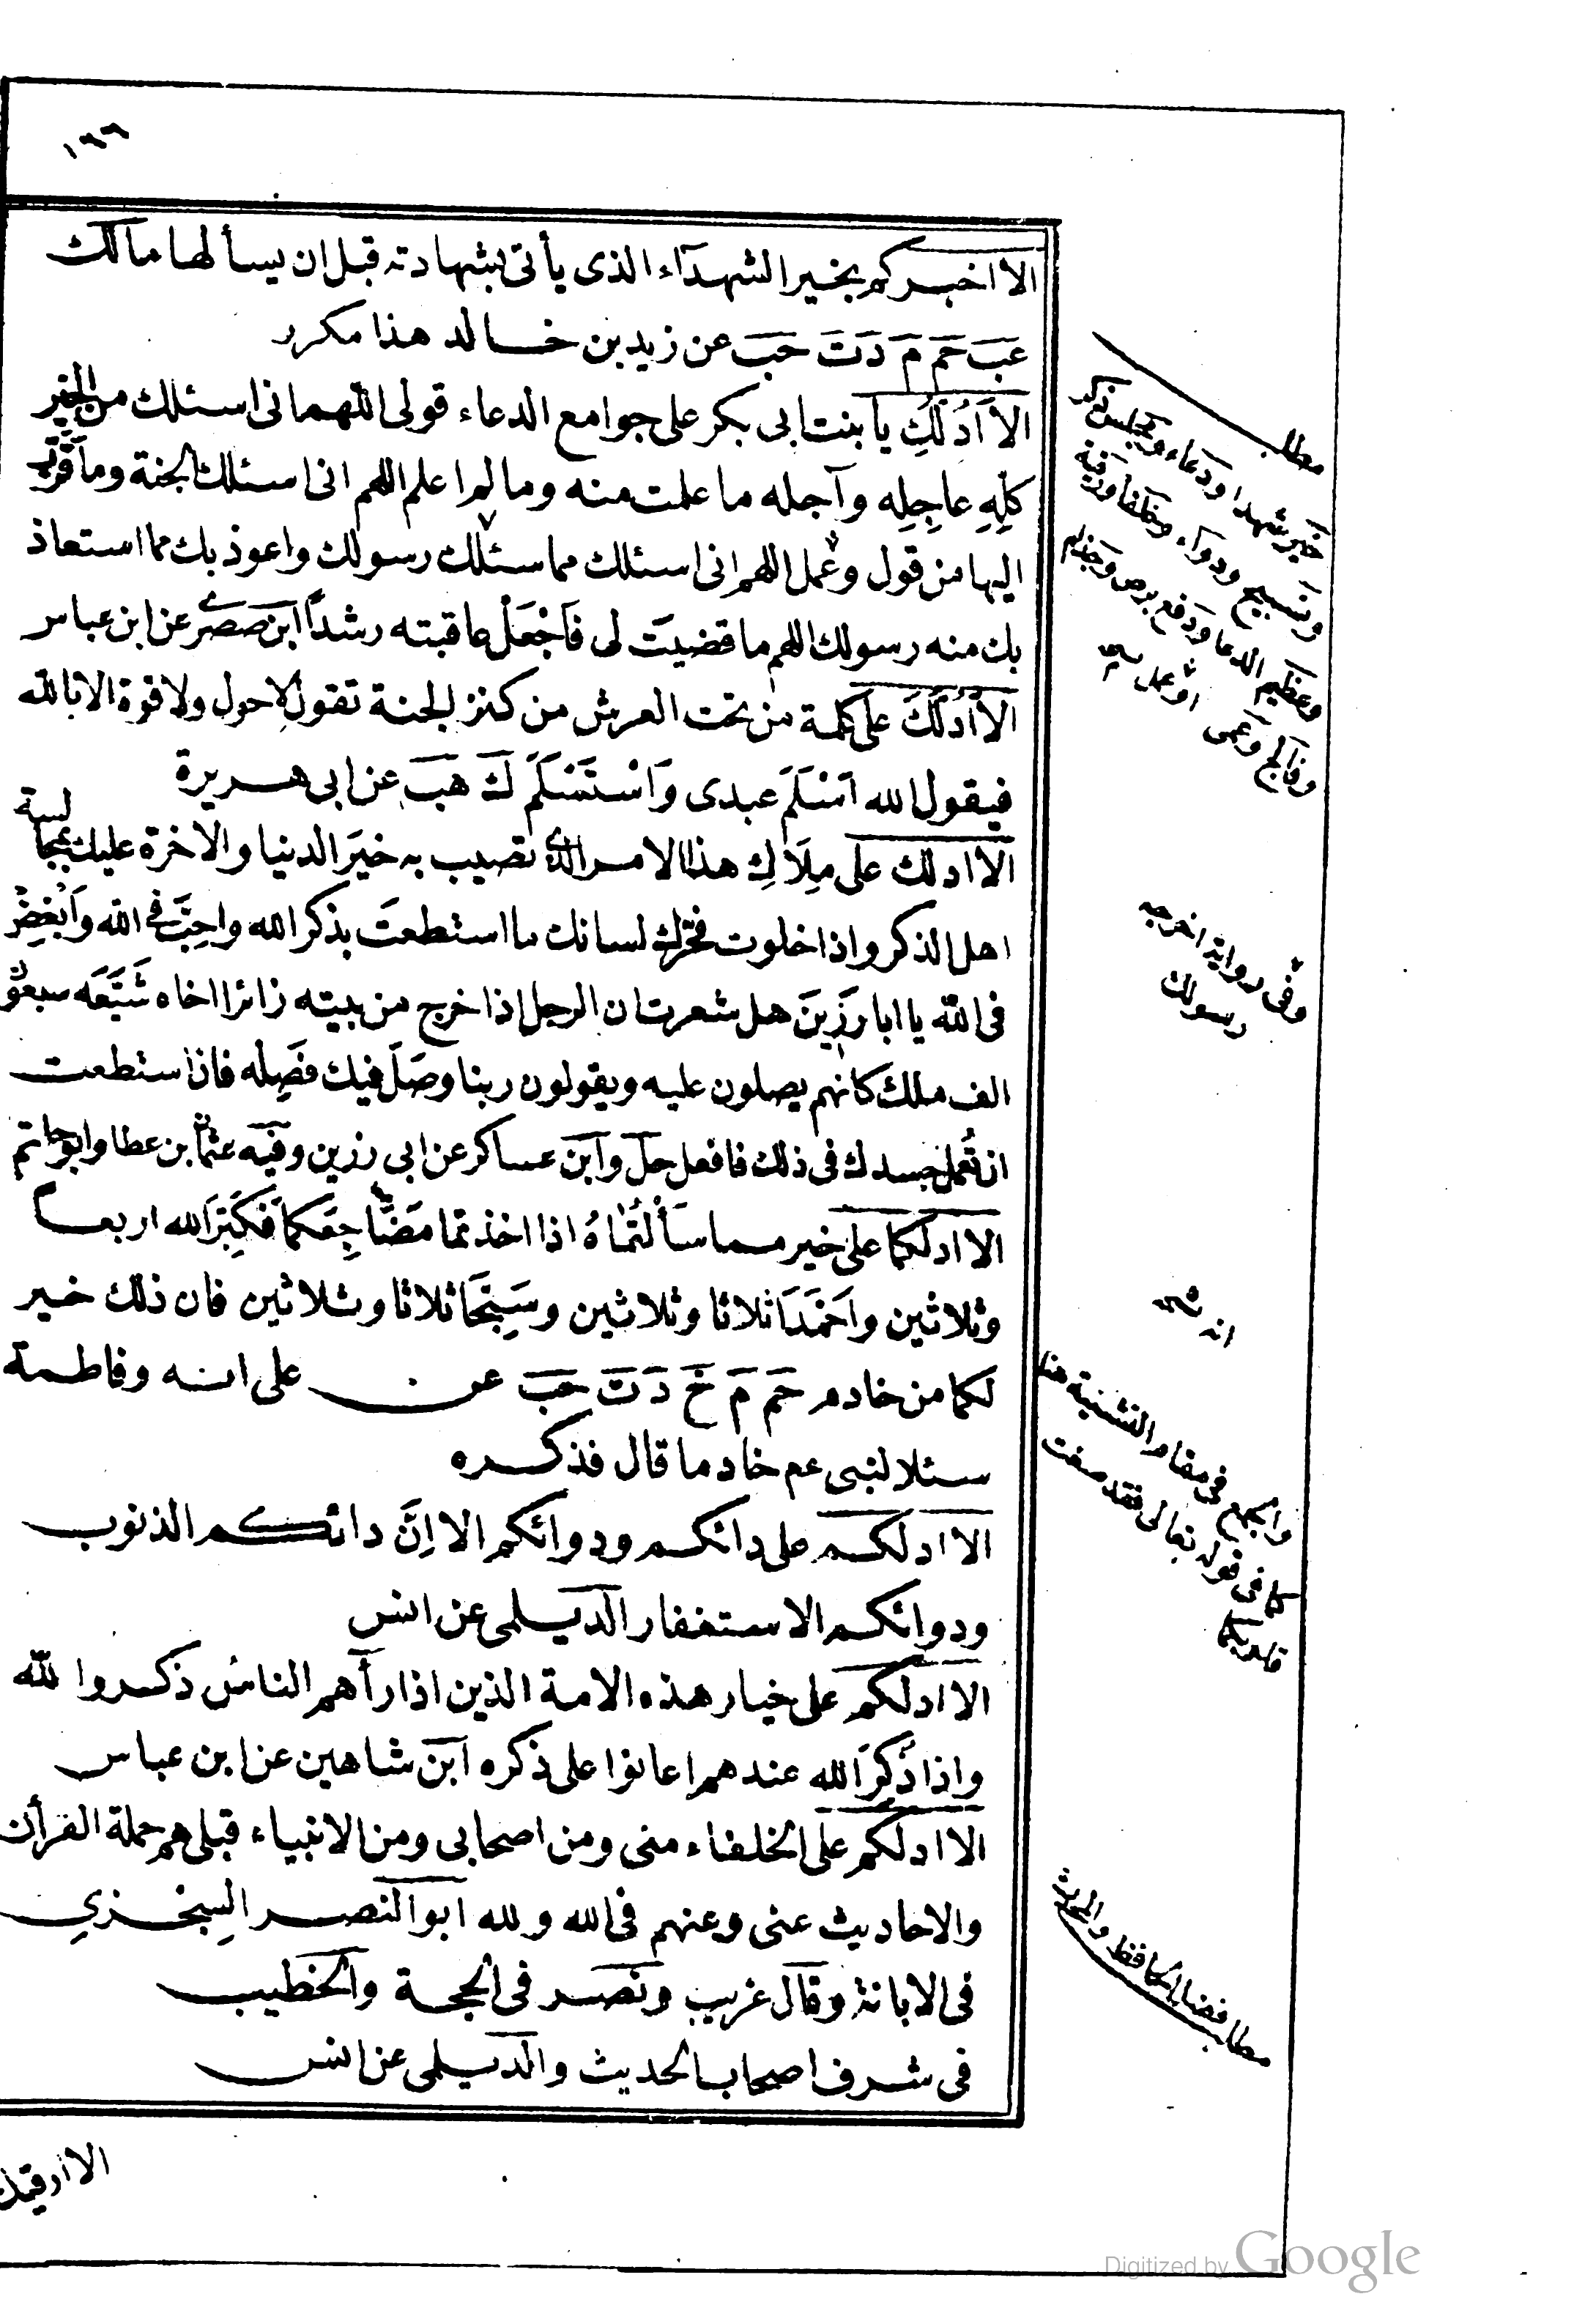 ١٩٦
الا اخبركم بخير الشهدآء الذى يأتى بشهادته قبل ان يسألها مالك
عب حم م د ت حب عن زيد بن خالد هذا مكرر
الا اَدُلُّكِ يا بنت ابى بكر على جوامع الدعاء قولى اللهم انى اسئلك من الخير
كلِّهِ عاجِلِه وآجله ما علمت منه وما لم اعلم اللهم انى اسئلك الجنة وما قرّب
اليها من قول وعمل اللهم انى اسئلك مما سئلك رسولك واعوذ بك مما استعاذ
بك منه رسولك اللهم ما قضيت لى فَاجْعَلْ عاقبته رشداً ابن صصرى عن ابن عباس
الا اَدُلُّكَ على كلمة من تحت العرش من كنز الجنة تقول لا حول ولا قوة الا بالله
فيقول الله اَسْلَمَ عبدى وَاسْتَسْلَمَ ك هب عن ابى هريرة
الا ادلك على مِلَاكِ هذا الامر الذى تصيب به خيَر الدنيا والاخرة عليك بمجالسة
اهل الذكر واذا خلوت فحرّك لسانك ما استطعتَ بذكر الله واحِبَّ فى الله وَاَبْغِضْ
فى الله يا ابا رَزِينَ هل شعرت ان الرجل اذا خرج من بيته زائرا اخاه شَيَّعَه سبعون
الف ملك كانهم يصلون عليه ويقولون ربنا وصَلَ فيك فَصِلْه فان استطعت
ان تُعمل جسدك فى ذلك فافعل حل وابن عساكر عن ابى رزين وفيه عثمان بن عطا وابو حاتم
الا ادلكما على خير مما سَأَلْتُمَاهُ اذا اخذتما مَضَاجِعَكما فَكَبِّرَا الله اربعا
وثلاثين واحْمَدَا ثلاثا وثلاثين وسَبِّحَا ثلاثا وثلاثين فان ذلك خير
لكما من خادم حم م خ د ت حب عن على انه وفاطمة
سئلا لنبى عم خادما قال فذكره
الا ادلكم على دائكم ودوائكم الا اِنَّ دائكم الذنوب
ودوائكم الاستغفار الديلمى عن انس
الا ادلكم على خيار هذه الامة الذين اذا رأهم الناسُ ذكروا لله
واذا ذُكِرَ الله عندهم اعانوا على ذكره ابن شاهين عن ابن عباس
الا ادلكم على الخلفاء منى ومن اصحابى ومن الانبياء قبلى هم حملة القرأن
والاحاديث عنى وعنهم فى الله ولله ابو النصر السِجْزِي
فى الابانة وقال غريب ونصر فى الحجة والخطيب
فى شرف اصحاب الحديث والديلمى عن انس
مطلب
خير شهدا ودعاء ومجلس ذكر
وتسبيح ودواء وخلفا ورقية
وعظيم الدعا ودفع برص وجذام
وفالج وعمى
او عمل
وفى رواية اخرجه
رسولك
انه
والجمع فى مقام التثنية هنا
كما فى قوله تعالى فقد صغت
قلوبكما
مطلب فضائل الحافظ والمحدث
الا ارقيك
Digitized by Google